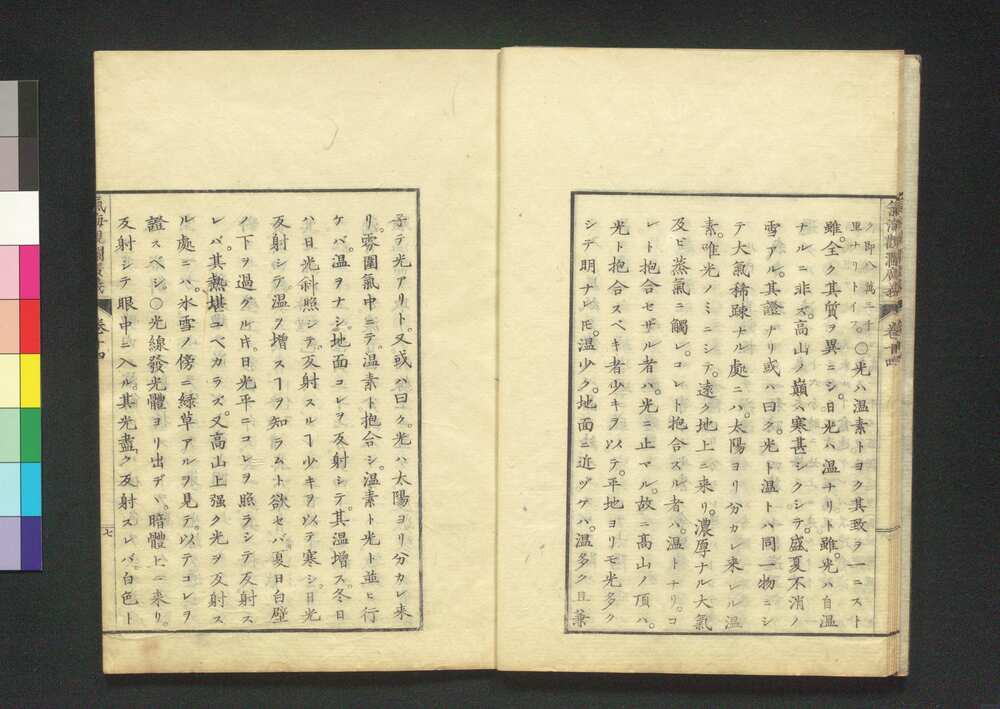 氣海觀瀾廣義 卷十四
ク即八萬三千
里ナリトイフ。〇光ハ温素トヨク其致ヲ一ニスト
雖。全ク其質ヲ異ニシ。日光ハ温ナリト雖。光ハ自温
ナルニ非ズ。高山ノ巔ハ寒甚シクシテ。盛夏不消ノ
雪アル。其證ナリ或ハ曰ク。光ト温トハ同一物ニシ
テ大氣稀踈ナル處ニハ。太陽ヨリ分カレ来レル温
素。唯光ノミニシテ。遠ク地上ニ来リ。濃厚ナル大氣
及ビ蒸氣ニ觸レ。コレト抱合スル者ハ。温トナリ。コ
レト抱合セザル者ハ。光ニ止マル。故ニ高山ノ頂ハ。
光ト抱合スベキ者少キヲ以テ。平地ヨリモ光多ク
シテ明ナレ𪜈。温少ク。地面ニ近ヅケハ。温多ク且兼
子テ光アリト。又或ハ曰ク。光ハ太陽ヨリ分カレ来
リ。雰圍氣中ニテ。温素ト抱合シ。温素ト光ト並ヒ行
ケバ。温ヲナシ。地面コレヲ反射シテ。其温増ス。冬日
ハ日光斜照シテ。反射スルヿ少キヲ以テ寒シ。日光
反射シテ温ヲ増スヿヲ知ラムト欲セバ。夏日白壁
ノ下ヲ過グル𪜈。日光平ニコレヲ照ラシテ反射ス
レバ。其熱堪ユベカラズ。又高山上強ク光ヲ反射ス
ル處ニハ。氷雪ノ傍ニ緑草アルヲ見テ。以テコレヲ
證スベシ〇光線發光體ヨリ出デヽ。暗體上ニ来リ。
反射シテ眼中ニ入ル。其光盡ク反射スレバ白色ト
氣海觀瀾廣義 卷十四
七